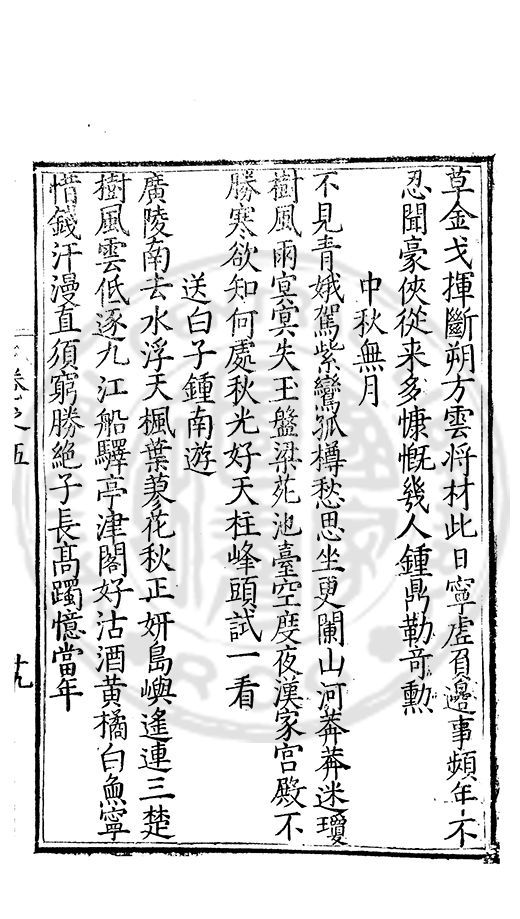 草金戈揮斷朔方雲將材此日寧虛負邊事頻年不
忍聞豪俠從来多慷慨幾人鍾鼎勒奇勲
中秋無月
不見青娥駕紫鸞孤樽愁思坐更闌山河莽莽迷瓊
樹風雨冥冥失玉盤梁苑池臺空度夜漢家宮殿不
勝寒欲知何處秋光好天柱峰頭試一看
送白子鍾南遊
廣陵南去水浮天楓葉蓼花秋正妍島嶼遙連三楚
樹風雲低逐九江船驛亭津閣好沽酒黃橘白魚寧
惜錢汗漫直須窮勝絕子長高躅憶當年
卷之五